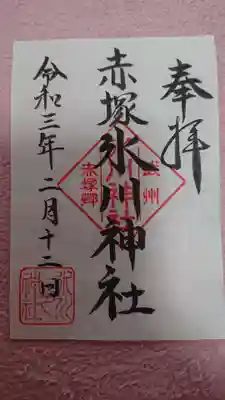 奉拝
赤塚氷川神社
武州
赤塚郷
令和三年二月十二日